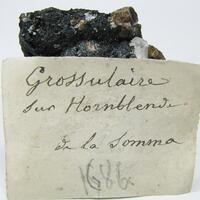 Grossulaire
sur Hornblende
de la Somma
1686